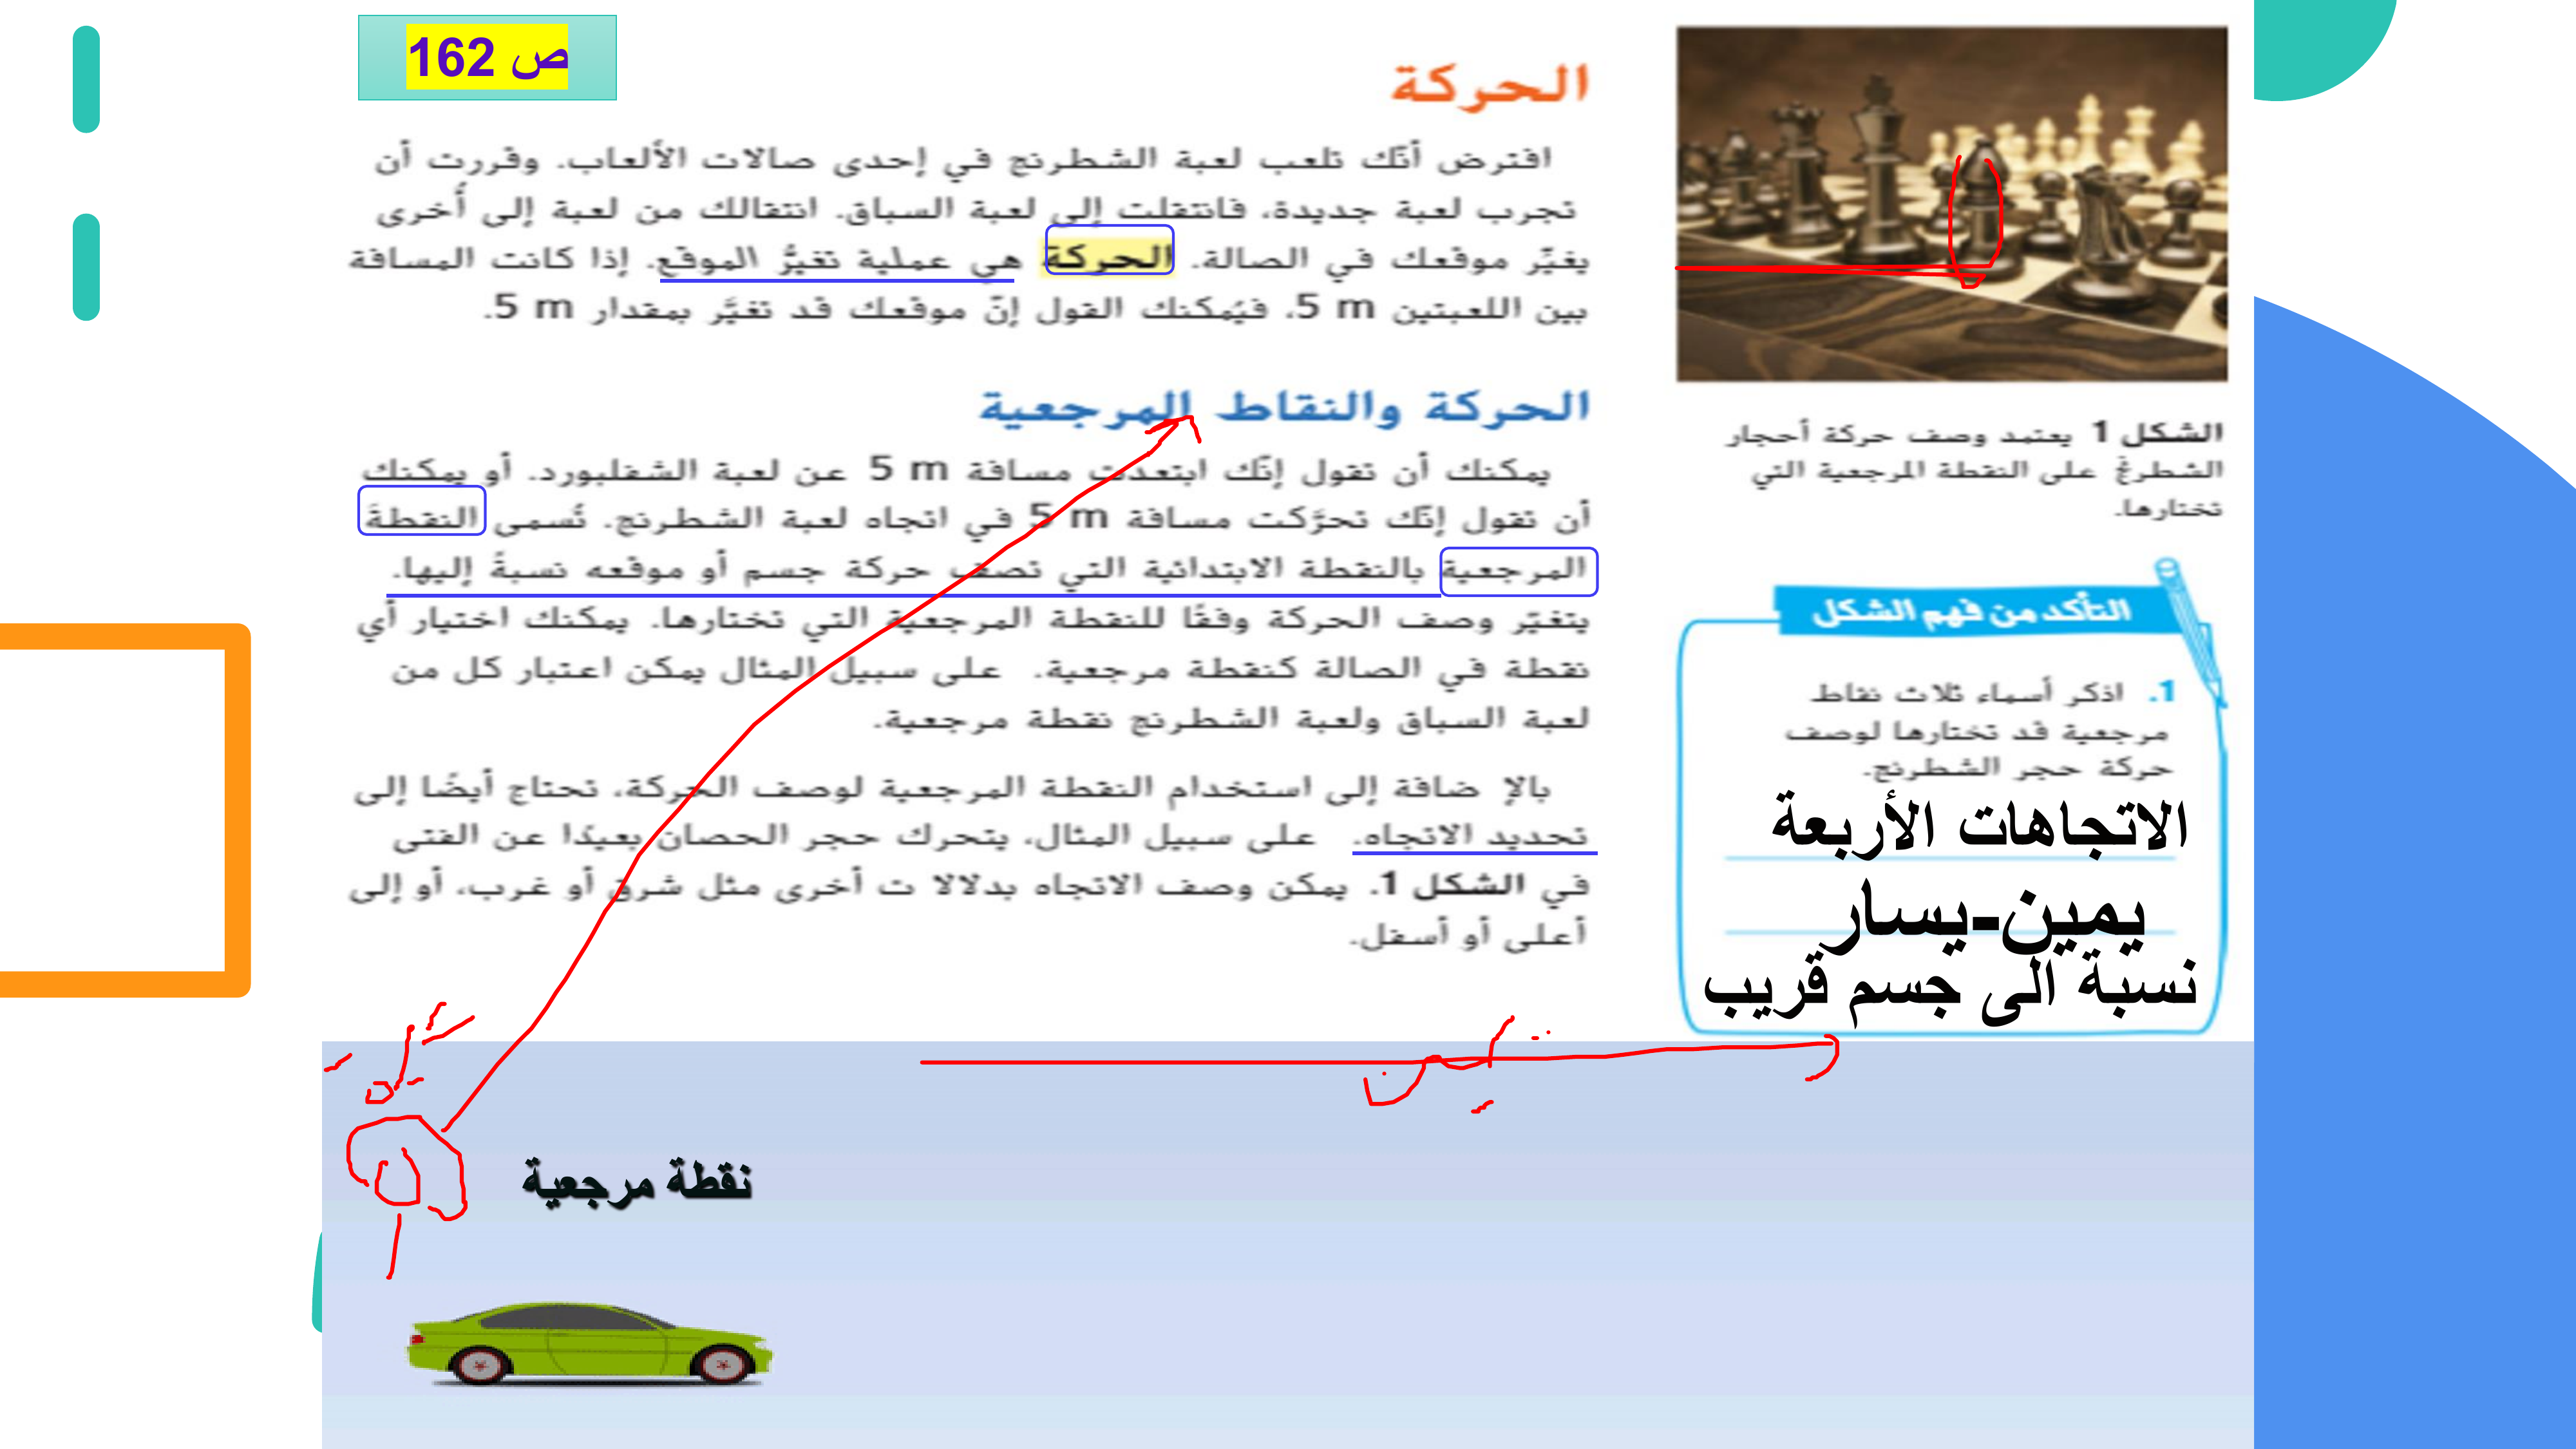 ص 162
الحركة
افترض أنّك تلعب لعبة الشطرنج في إحدى صالات الألعاب. وقررت أن
تجرب لعبة جديدة، فانتقلت إلى لعبة السباق. انتقالك من لعبة إلى أُخرى
يغيِّر موقعك في الصالة. الحركة هي عملية تغيُّر الموقع. إذا كانت المسافة
بين اللعبتين 5 m، فيُمكنك القول إنّ موقعك قد تغيَّر بمقدار 5 m.
الحركة والنقاط المرجعية
يمكنك أن تقول إنّك ابتعدت مسافة 5 m عن لعبة الشفلبورد. أو يمكنك
أن تقول إنّك تحرَّكت مسافة 5 m في اتجاه لعبة الشطرنج. تُسمى النقطة
المرجعية بالنقطة الابتدائية التي تصف حركة جسم أو موقعه نسبةً إليها.
يتغيّر وصف الحركة وفقًا للنقطة المرجعية التي تختارها. يمكنك اختيار أي
نقطة في الصالة كنقطة مرجعية. على سبيل المثال يمكن اعتبار كل من
لعبة السباق ولعبة الشطرنج نقطة مرجعية.
بالإ ضافة إلى استخدام النقطة المرجعية لوصف الحركة، تحتاج أيضًا إلى
تحديد الاتجاه. على سبيل المثال، يتحرك حجر الحصان بعيدًا عن الفتى
في الشكل 1. يمكن وصف الاتجاه بدلالا ت أخرى مثل شرق أو غرب، أو إلى
أعلى أو أسفل.
الشكل 1 يعتمد وصف حركة أحجار
الشطرنج على النقطة المرجعية التي
تختارها.
التأكد من فهم الشكل
1. اذكر أسماء ثلاث نقاط
مرجعية قد تختارها لوصف
حركة حجر الشطرنج.
الاتجاهات الأربعة
يمين-يسار
نسبة الى جسم قريب
نقطة مرجعية